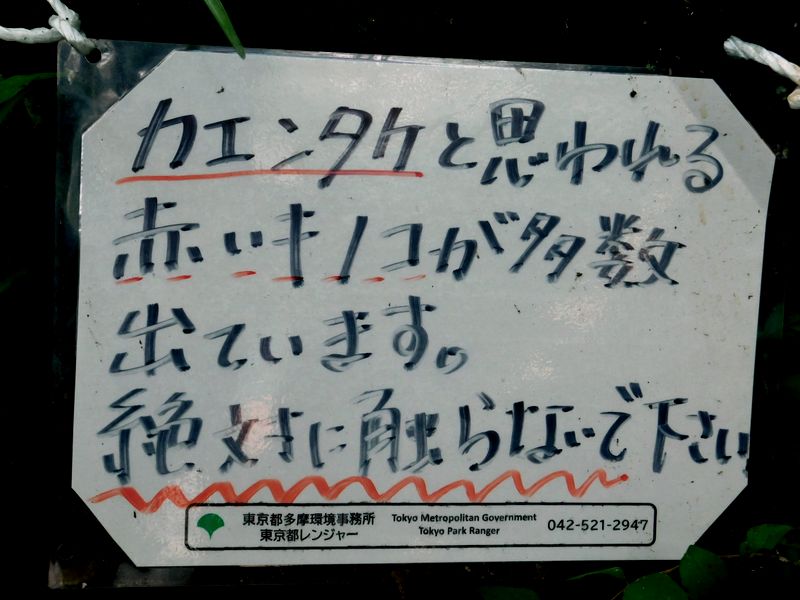 カエンタケと思われる
赤いキノコが多数
出ています。
絶対に触らないで下さい
東京都多摩環境事務所
東京都レンジャー
Tokyo Metropolitan Government
Tokyo Park Ranger
042-521-2947